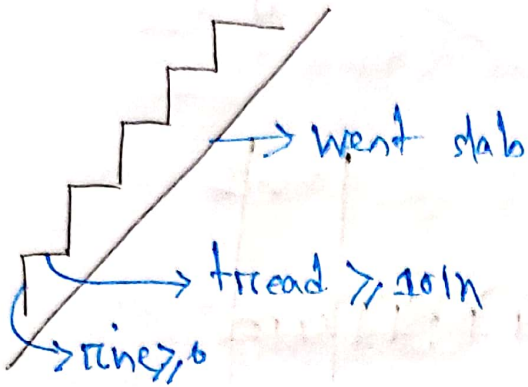 went slab
tread ⩾ 10in
rise ⩾ 6